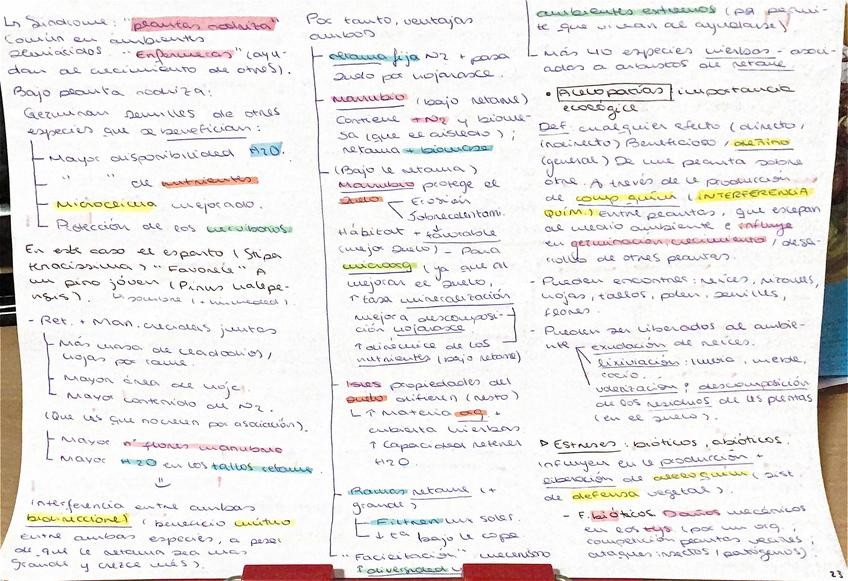 Ls Síndrome: "plantas nodriza"
Común en ambientes
semiáridos "Enfermeras" (ayu-
dan al crecimiento de otras).
Bajo planta nodriza:
Germinan semillas de otras
especies que se benefician:
- Mayor disponibilidad H2O.
- " " de nutrientes
- Microclima mejorado.
- Protección de los
En este caso el esparto (Stipa
tenacissima) "Favorece" A
un pino jóven (Pinus halepe-
nsis). ↳ sombra (+ humedad).
- Ret. + Man. crecidas juntas
Más masa de cladodios/
hojas por rama.
- Mayor área de hoja.
- Mayor contenido de N2.
(Que las que no crecen por asociación).
- Mayor nº flores manubrio
- Mayor H2O en los tallos retama
Interferencia entre ambas
bidireccional (beneficio mútuo
entre ambas especies, a pesar
de que la retama sea más
grande y crezca más).
Por tanto, ventajas
ambos
- retama fija N2 + pasa
suelo por hojarasca.
- Manubio (bajo retama)
contiene +N2 y bioma-
sa (que el aislado);
retama + biomasa
- (Bajo la retama)
Manubio protege el
suelo Erosión
Sobrecalentami.
Hábitat + favorable
(mejor suelo) - Para
microorg (ya que al
mejorar el suelo,
↑ tasa mineralización
mejora descomposi-
ción hojarasca
↑ dinámica de los
nutrientes (bajo retama)
- Islas propiedades del
suelo difieren (resto)
↳ ↑ Materia org +
cubierta hierbas
↑ Capacidad retener
H2O.
- Ramas retama (+
grande)
- Filtran luz solar.
- ↓ bajo la copa
"Facilitación" mecanismo
↑ diversidad
ambientes extremos (ya permi-
te que vivan al ayudarse)
- Más 40 especies hierbas - asoci-
adas a arbustos de retama.
• Alelopatías: importancia
ecológica.
Def. cualquier efecto (directo,
indirecto) Beneficioso, dañino
(general) De una planta sobre
otra. A través de la producción
de comp quím (INTERFERENCIA
QUÍM.) entre plantas, que escapan
al medio ambiente e influye
en germinación crecimiento / desa-
rrollo de otras plantas.
- Pueden encontrar: raíces, rizomas,
hojas, tallos, polen, semillas,
flores.
- Pueden ser liberados al ambie-
nte exudación de raíces.
lixiviación: lluvia, niebla,
rocío.
volatilización y descomposición
de los residuos de las plantas
(en el suelo).
▷ Estreses: bióticos, abióticos.
Influyen en la producción +
liberación de aleloquím (sist.
de defensa vegetal).
- F. bióticos. Daños mecánicos
en los tejs (por un org.,
competición plantas vecinas,
ataques insectos / patógenos).
23